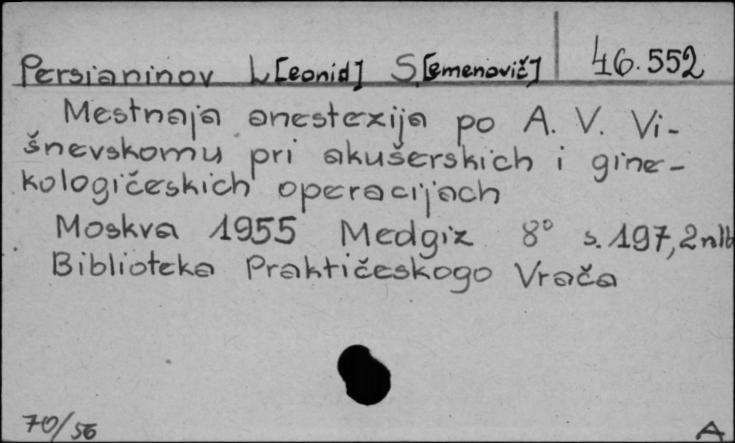 Persianinov L[eonid] S[emenovič] 46.552
Mestnaja anestezija po A. V. Vi-
šnevskomu pri akušerskich i gine-
kologičeskich operacijach
Moskva 1955 Medgiz 8° s. 197, 2 nlb
Biblioteka Praktičeskogo Vrača
70/56 A